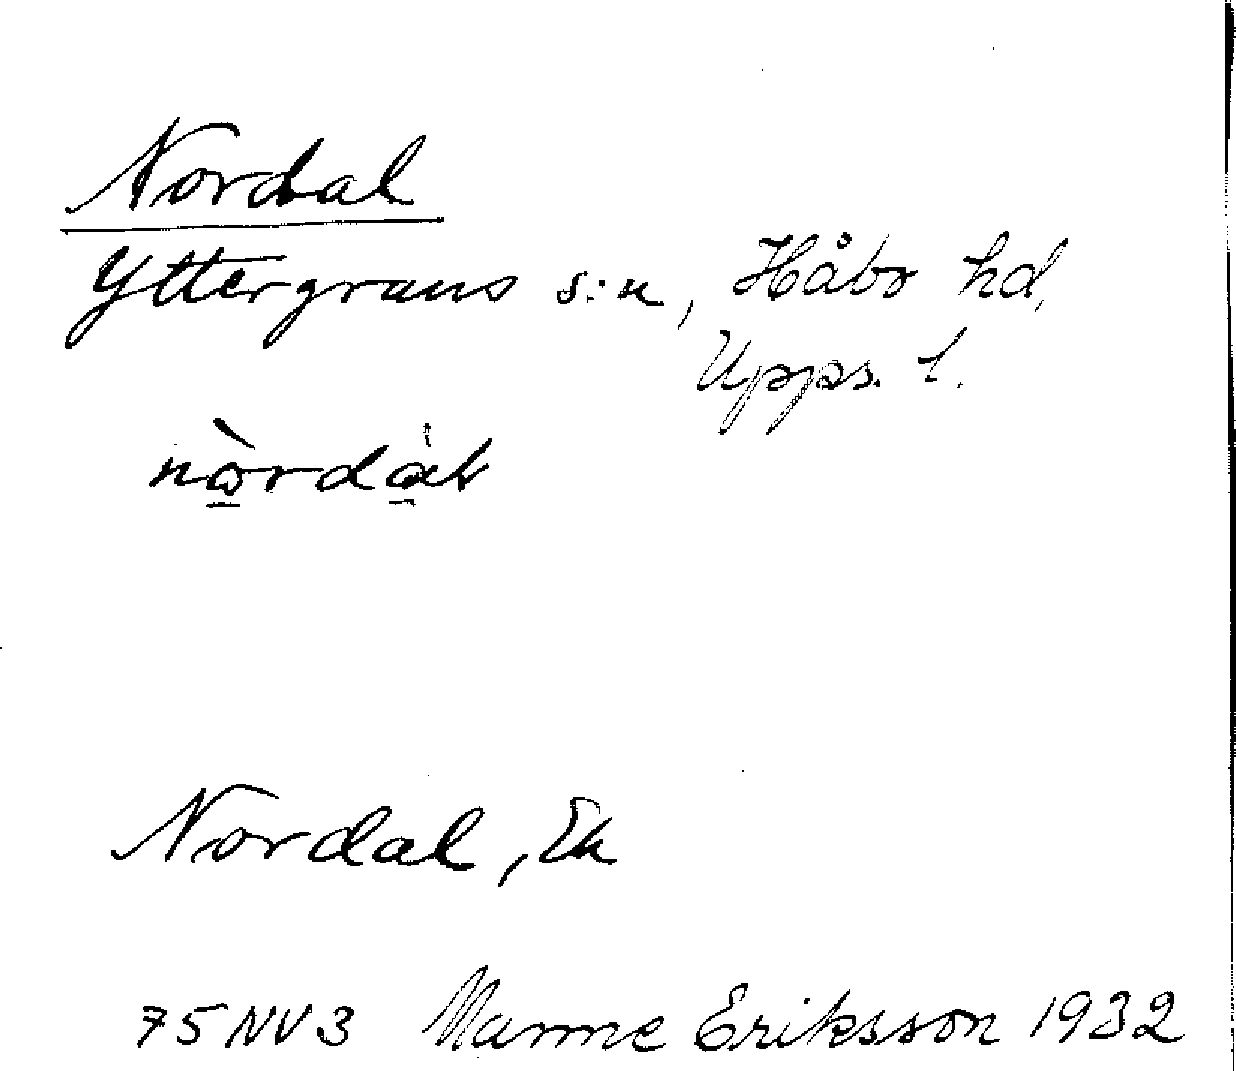 Nordal
Yttergrans s:n, Håbo hd,
Upps. l.
Nordal, Ek
75NV3 Manne Eriksson 1932